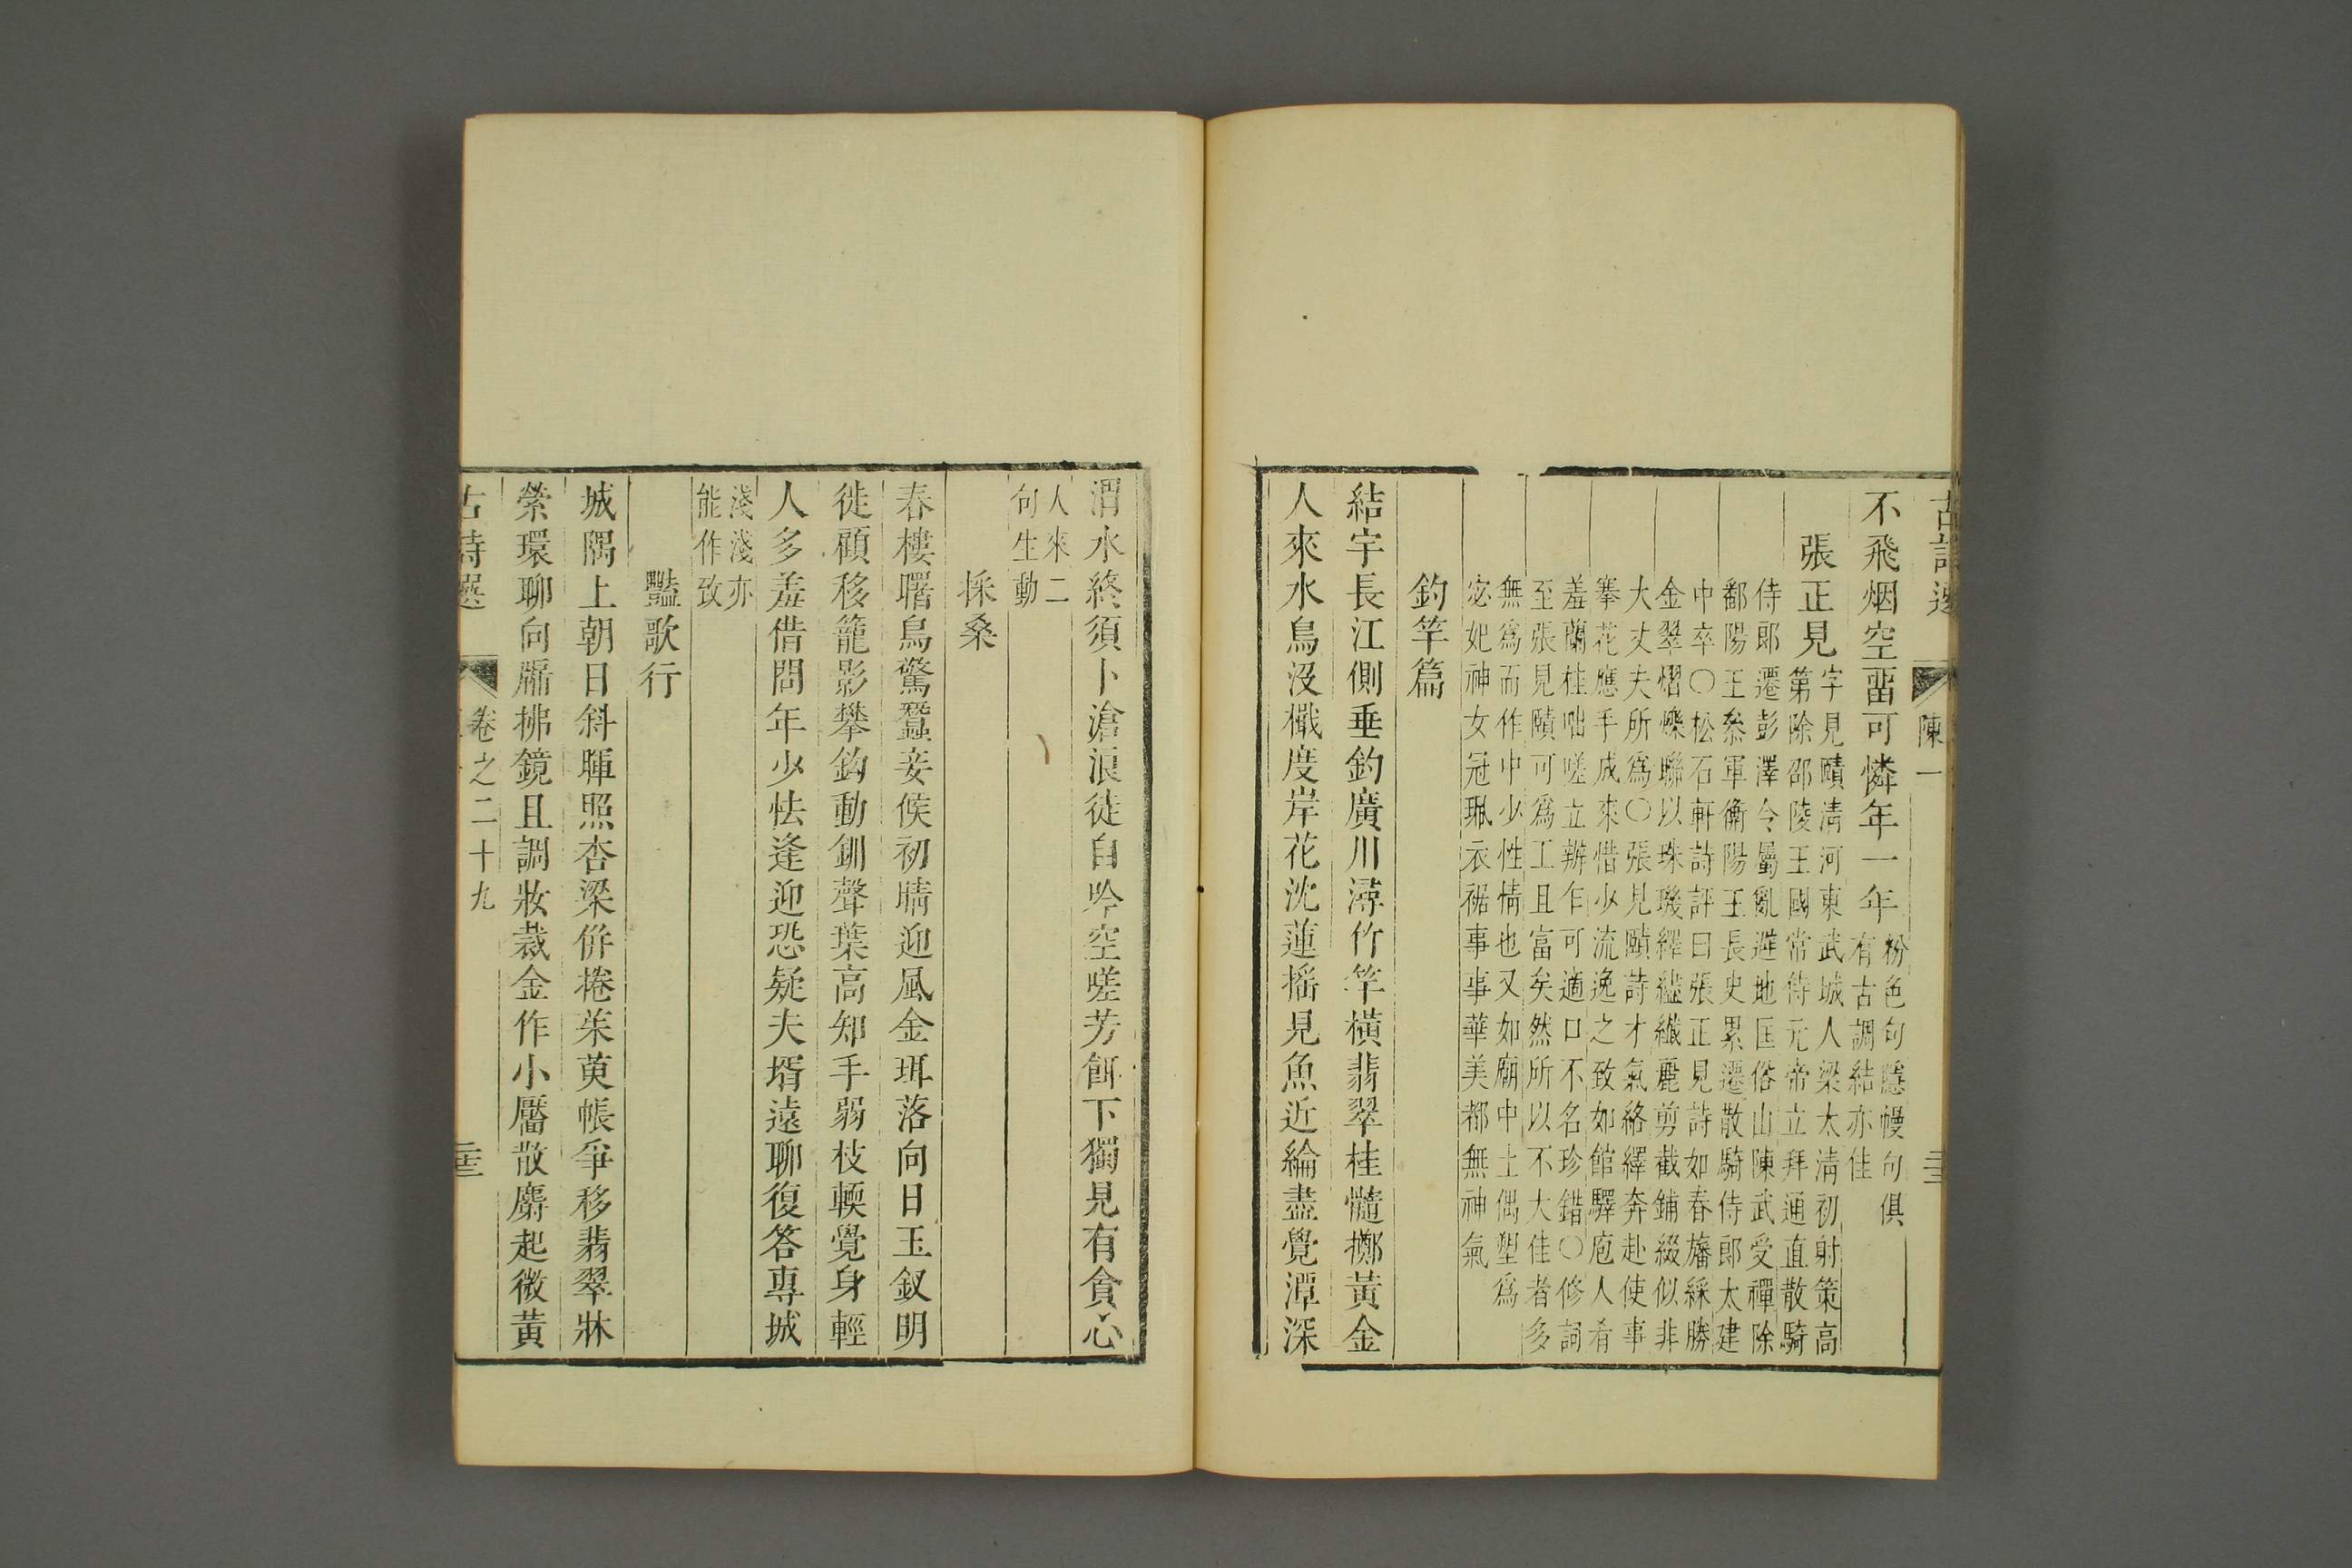 陳一
不飛烟空畱可憐年一年
粉色句隱幔句俱
有古調結亦佳
張正見
字見賾清河東武城人梁太清初射策高
第除邵陵王國常侍元帝立拜通直散騎
侍郎遷彭澤令屬亂避地匡俗山陳武受禪除
鄱陽王叅軍衡陽王長史累遷散騎侍郎太建
中卒〇松石軒詩評曰張正見詩如春旛綵勝
金翠熠爍聯以珠璣繹繾纖麗剪截鋪綴似非
大丈夫所爲〇張見賾詩才氣絡繹奔赴使事
搴花應手成來惜少流逸之致如館驛庖人肴
羞蘭桂咄嗟立辦乍可適口不名珍錯〇修詞
至張見賾可爲工且富矣然所以不大佳者多
無爲而作中少性情也又如廟中土偶塑爲
宓妃神女冠珮衣裾事事華美都無神氣
釣竿篇
結宇長江側垂釣廣川潯竹竿橫翡翠桂髓擲黃金
人來水鳥沒檝度岸花沈蓮搖見魚近綸盡覺潭深
渭水終須卜滄浪徒自吟空嗟芳餌下獨見有貪心
人來二
句生動
採桑
春樓曙鳥驚蠶妾候初晴迎風金珥落向日玉釵明
徙顧移籠影攀鈎動釧聲葉高知手弱枝輭覺身輕
人多羞借問年少怯逢迎恐疑夫壻遠聊復答專城
淺淺亦
能作致
豔歌行
城隅上朝日斜暉照杏梁倂捲茱萸帳爭移翡翠牀
縈環聊向牖拂鏡且調妝裁金作小靨散麝起微黃
古詩選
卷之二十九